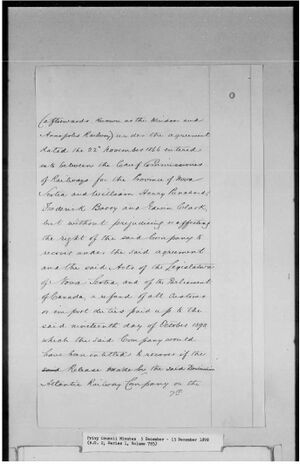 (afterwards known as the Windsor and
Annapolis Railway) under the agreement
dated the 22nd November 1866 entered
into between the Chief Commissioner
of Railways for the Province of Nova
Scotia and William Henry Punchard,
Frederick Barry and Edwin Clark,
but without prejudicing or affecting
the right of the said Company to
recover under the said agreement
and the said Acts of the Legislature
of Nova Scotia, and of the Parliament
of Canada, a refund of all Customs
or import duties paid up to the
said nineteenth day of October 1892
which the said Company would
have been entitled to recover if the
Release made by the said Dominion
Atlantic Railway Company on the
7th
Privy Council Minutes 5 December - 13 December 1898
(R.G. 2, Series 1, Volume 785)